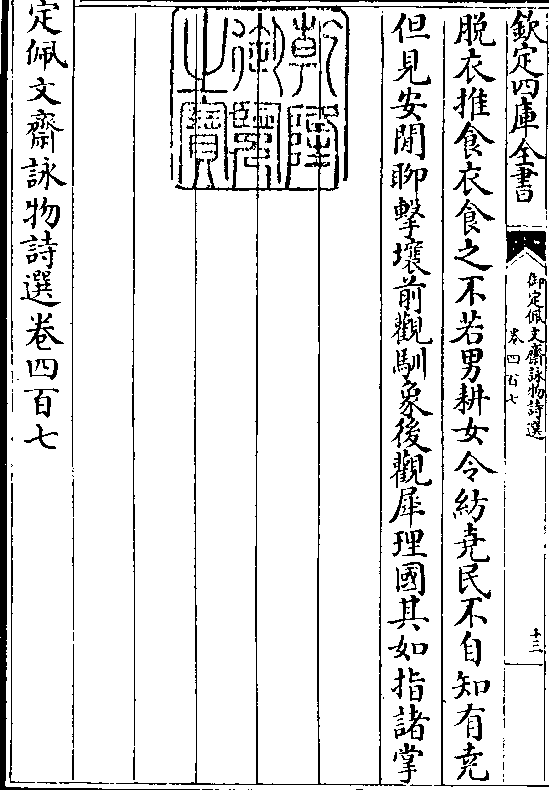 欽定四庫全書
御定佩文齋詠物詩選
卷四百七
十三
脫衣推食衣食之不若男耕女令紡堯民不自知有堯
但見安閒聊擊壤前觀馴象後觀犀理國其如指諸掌
乾隆御覽之寶
定佩文齋詠物詩選卷四百七